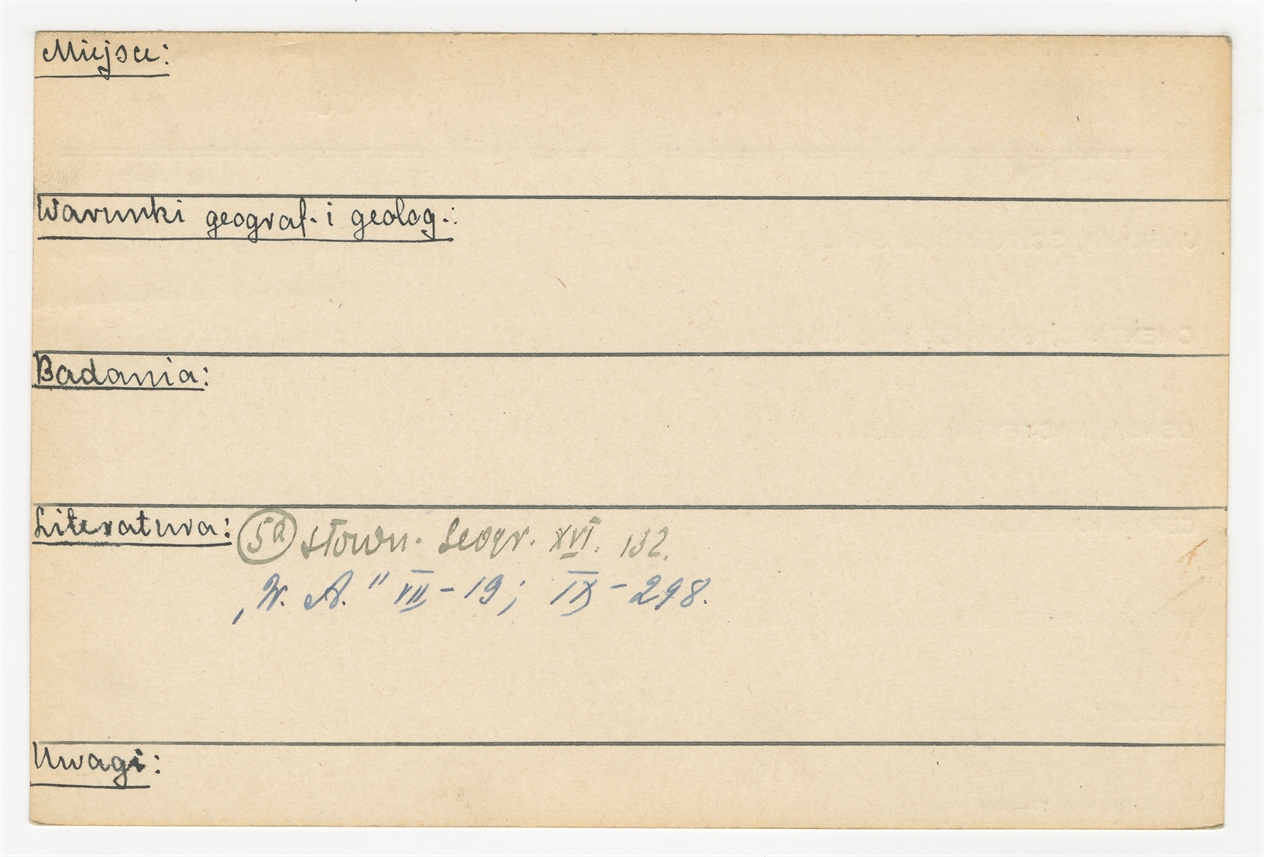 Miejsce:
Warunki geograf. i geolog.:
Badania:
Literatura: 5a Słown. Geogr. XVI. 132.
„W. A." VII - 19; IX - 298.
Uwagi: